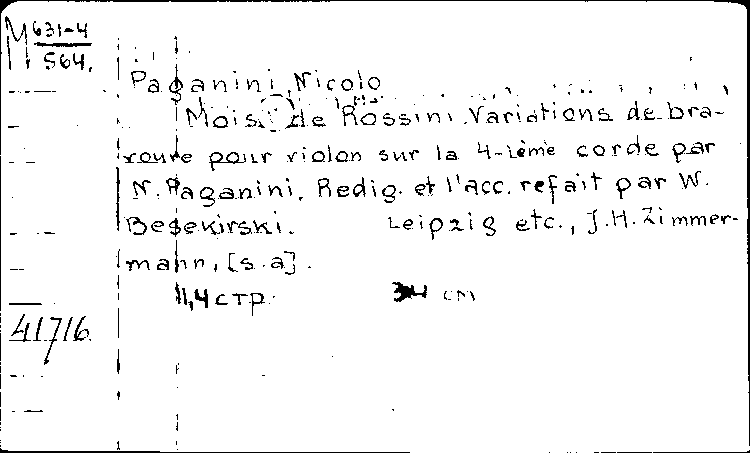 M 631-4
564.
Paganini, Nicolo
Mois. de Rossini. Variations de bra-
voure pour violon sur la 4-ième corde par
N. Paganini. Redig. et l'acc. refait par W.
Besekirski. Leipzig etc., J.H. Zimmer-
mann, [s.a].
11,4 стр. 34 см
41716